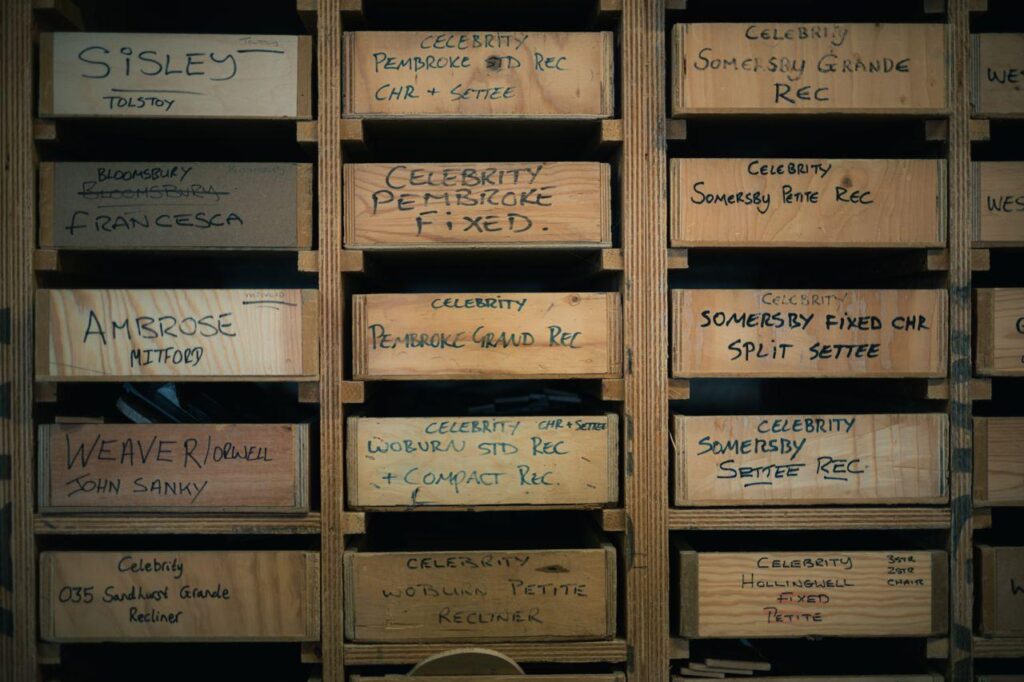 SiSLEY
TOLSTOY
BLOOMSBURY
BLOOMSBURY
FRANCESCA
AMBROSE
MITFORD
WEAVER/ORWELL
JOHN SANKY
Celebrity
035 Sandhurst Grande
Recliner
CELEBRITY
PEMBROKE STD REC
CHR + SETTEE
CELEBRITY
PEMBROKE
FiXED.
CELEBRITY
PEMBROKE GRAND REC
CELEBRITY CHR + SETTEE
WOBURN STD REC
+ COMPACT REC.
CELEBRITY
WOBURN PETITE
RECLINER
CELEBRITY
SOMERSBY GRANDE
REC
CELEBRITY
SOMERSBY PETITE REC
CELEBRITY
SOMERSBY FIXED CHR
SPLIT SETTEE
CELEBRITY
SOMERSBY
SETTEE REC.
CELEBRITY 3STR
2STR
HOLLINGWELL CHAIR
FIXED
PETITE
WE
WES